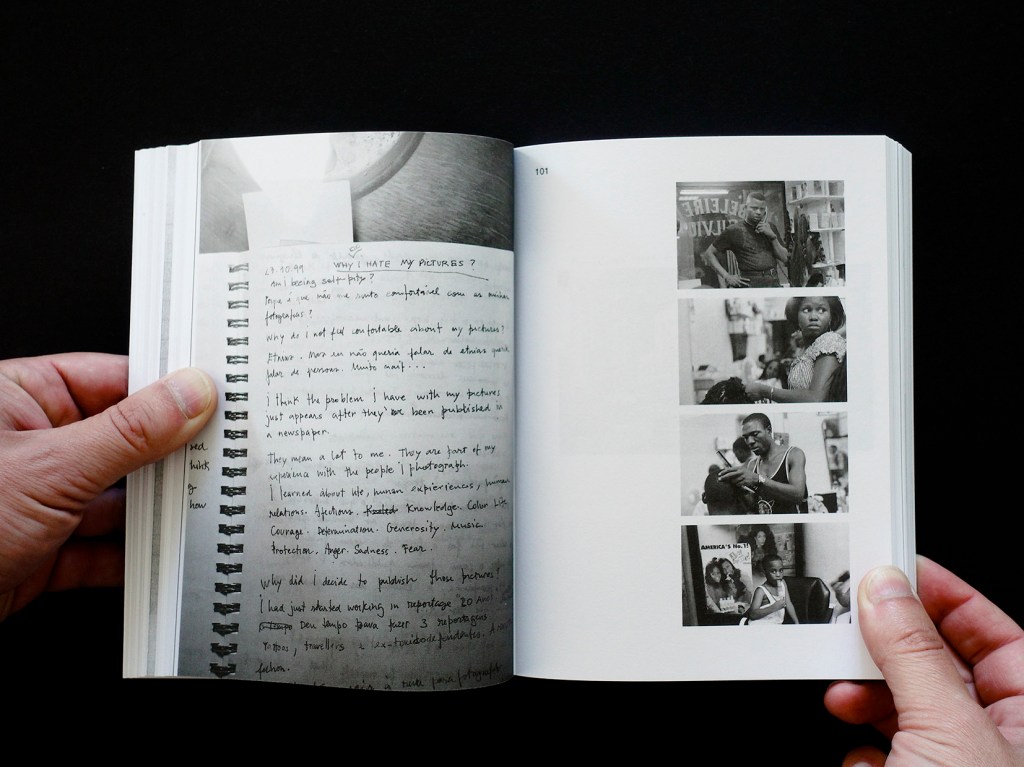 27.10.99 WHY I HATE MY PICTURES?
Am I being self-pity?
Porque é que não me sinto comfortável com as minhas
fotografias?
Why do I not feel confortable about my pictures?
Etnias. Mas eu não queria falar de etnias queria
falar de pessoas. Muito naif...
I think the problem I have with my pictures
just appears after they've been published in
a newspaper.
They mean a lot to me. They are part of my
experience with the people I photograph.
I learned about life, human experiences, human
relations. Afections. Knowledge. Color. Life
Courage. Determination. Generosity. Music
Protection. Anger. Sadness. Fear.
Why did I decide to publish those pictures?
I had just started working in reportage "20 Anos"
Deu tempo para fazer 3 reportagens
Tattoos, travellers e ex-toxicodependentes. A
fashion.
a para fotografar
red
think
how
101
AMERICA'S No.1!